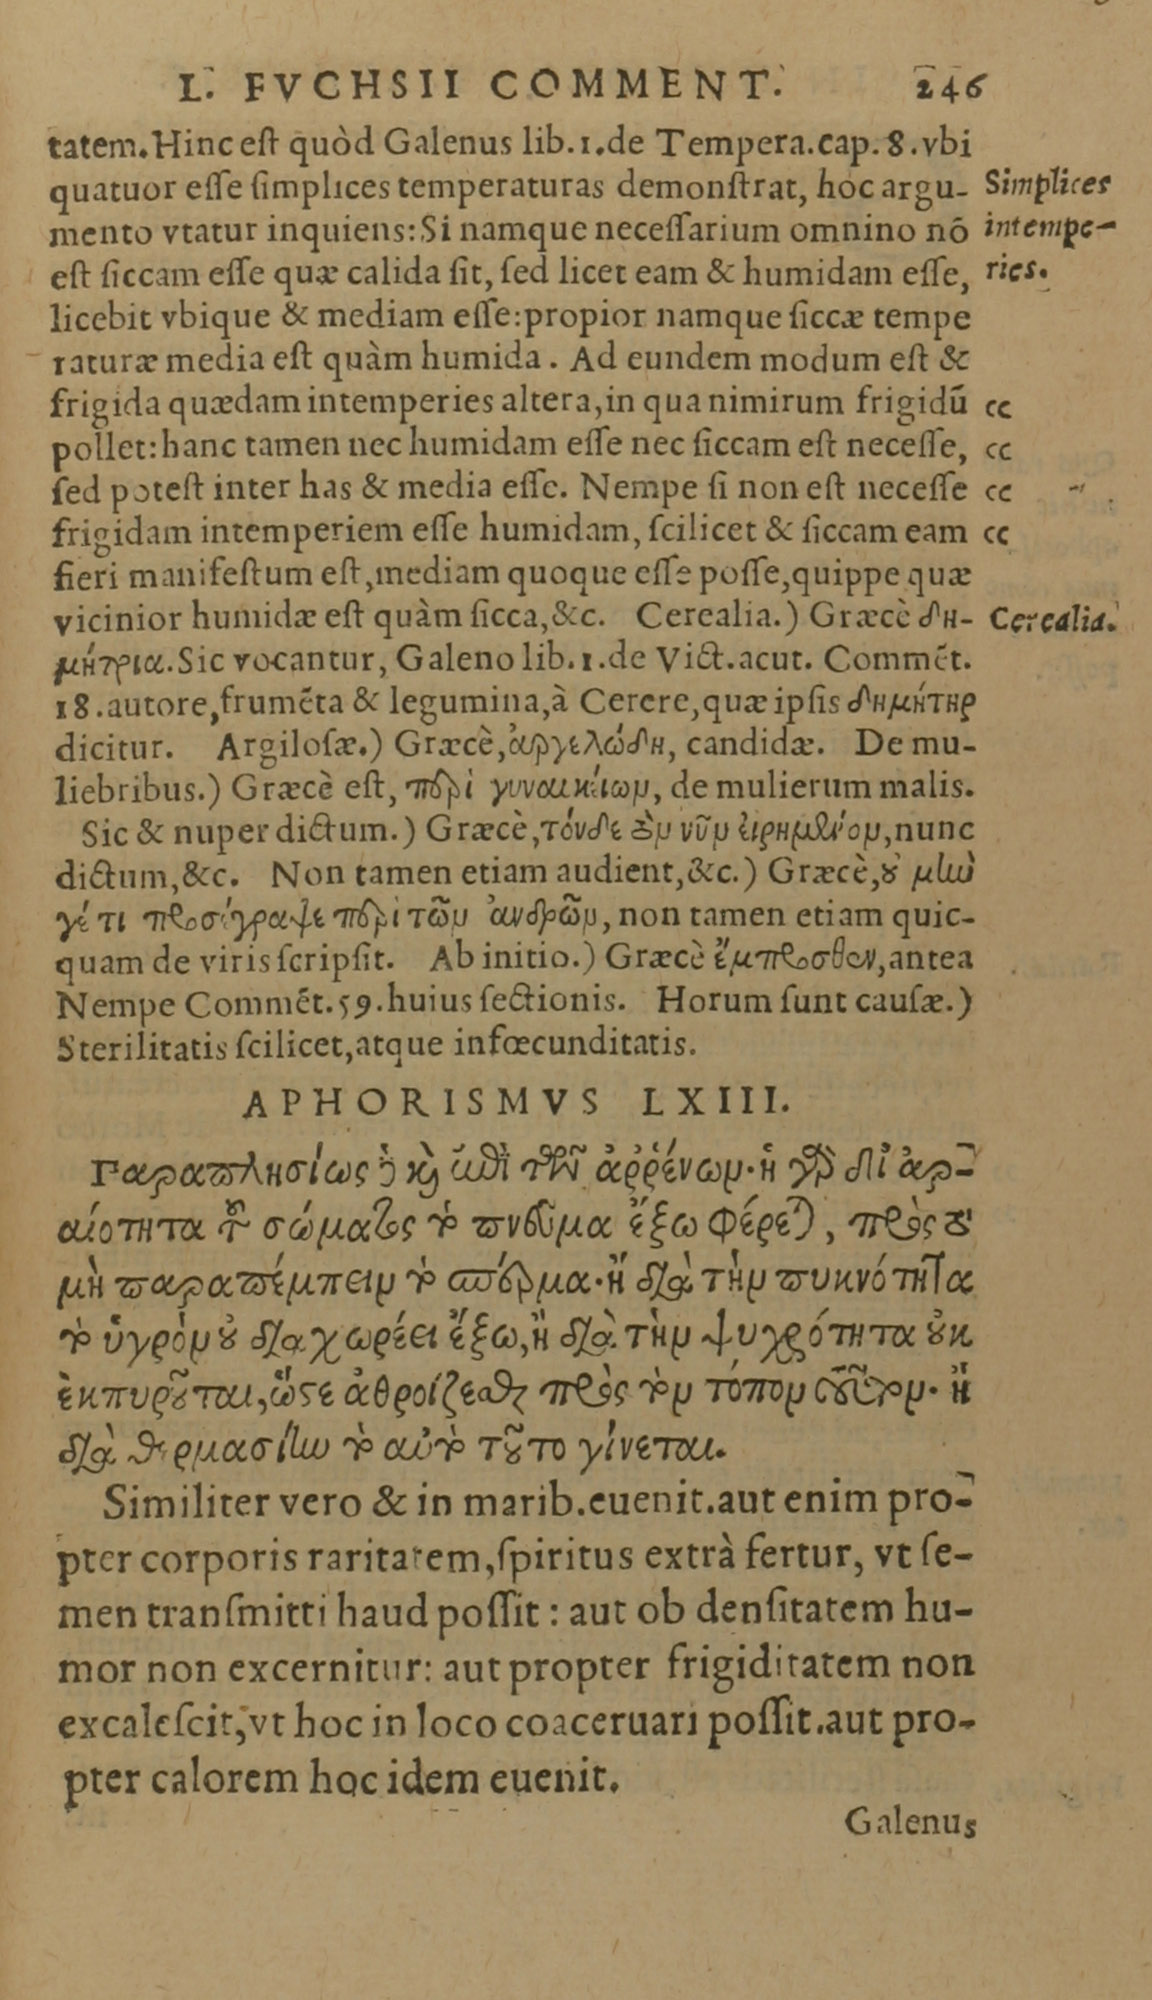 L. FVCHSII COMMENT. 246
tatem. Hinc est quòd Galenus lib.1.de Tempera.cap.8.vbi
quatuor esse simplices temperaturas demonstrat, hoc argu-
Simplices
mento vtatur inquiens: Si namque necessarium omnino nō
intempe-
est siccam esse quæ calida sit, sed licet eam & humidam esse,
ries.
licebit vbique & mediam esse: propior namque siccæ tempe
raturæ media est quàm humida. Ad eundem modum est &
frigida quædam intemperies altera, in qua nimirum frigidū
cc
pollet: hanc tamen nec humidam esse nec siccam est necesse,
cc
sed potest inter has & media esse. Nempe si non est necesse
cc
frigidam intemperiem esse humidam, scilicet & siccam eam
cc
fieri manifestum est, mediam quoque esse posse, quippe quæ
vicinior humidæ est quàm sicca, &c. Cerealia.) Græcè δη-
Cerealia.
μήτρια. Sic vocantur, Galeno lib.1.de Vict.acut. Commēt.
18.autore, frumēta & legumina, à Cerere, quæ ipsis δημήτηρ
dicitur. Argilosæ.) Græcè, ἀργελώδη, candidæ. De mu-
liebribus.) Græcè est, περὶ γυναικείων, de mulierum malis.
Sic & nuper dictum.) Græcè, τόνδε ὂν νῦν εἰρημένον, nunc
dictum, &c. Non tamen etiam audient, &c.) Græcè, οὐ μὴν
γέ τι προσέγραψε περὶ τῶν ἀνδρῶν, non tamen etiam quic-
quam de viris scripsit. Ab initio.) Græcè ἔμπροσθεν, antea
Nempe Commēt.59.huius sectionis. Horum sunt causæ.)
Sterilitatis scilicet, atque infœcunditatis.
APHORISMVS LXIII.
Γαραπλησίως δὲ καὶ ἐπὶ τῶν ἀῤῥένων· ἢ γὰρ διὰ ἀρ-
αιότητα τοῦ σώματος τὸ πνεῦμα ἔξω φέρεται, πρὸς τὸ
μὴ παραπέμπειν τὸ σπέρμα· ἢ διὰ τὴν πυκνότητα
τὸ ὑγρὸν οὐ διαχωρέει ἔξω, ἢ διὰ τὴν ψυχρότητα οὐκ
ἐκπυροῦται, ὥστε ἀθροίζεσθαι πρὸς τὸν τόπον τοῦτον· ἢ
διὰ θερμασίην τὸ αὐτὸ τοῦτο γίνεται.
Similiter vero & in marib.euenit.aut enim pro-
pter corporis raritatem, spiritus extrà fertur, vt se-
men transmitti haud possit: aut ob densitatem hu-
mor non excernitur: aut propter frigiditatem non
excalescit, vt hoc in loco coaceruari possit.aut pro-
pter calorem hoc idem euenit.
Galenus